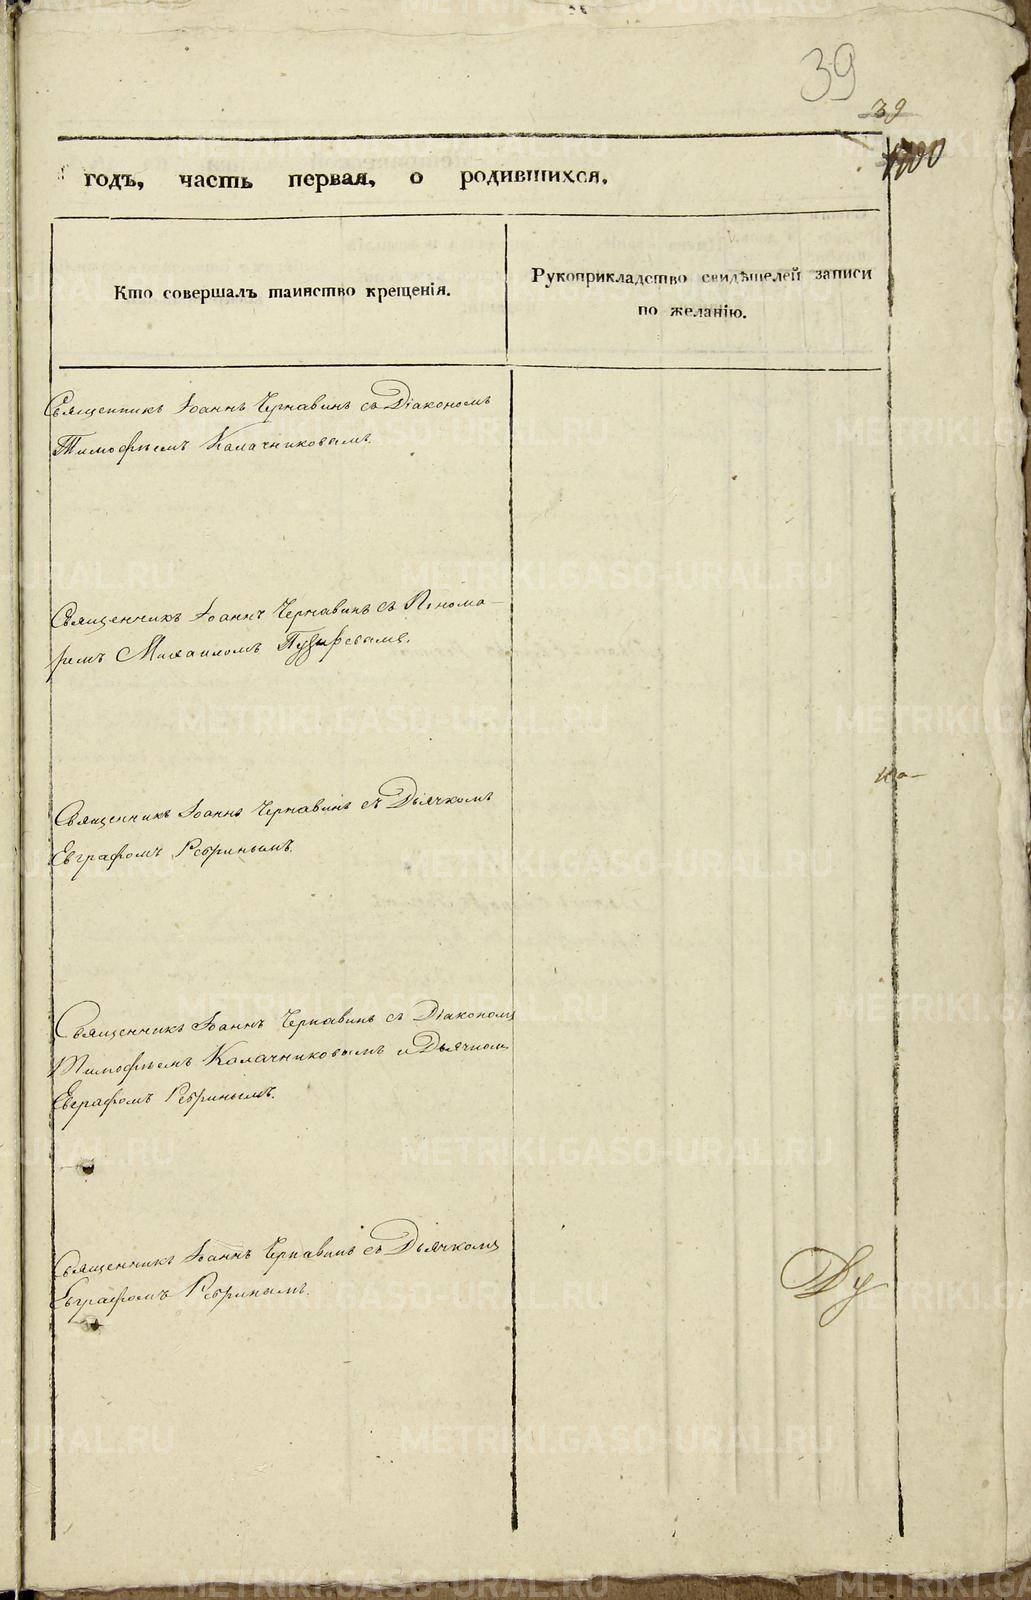 39
39
годъ, часть первая, о родившихся.
Кто совершалъ таинство крещенія.
Рукоприкладство свидѣтелей записи
по желанію.
Священникъ Іоаннъ Чернавинъ съ Діакономъ
Тимофѣемъ Калачниковымъ.
Священникъ Іоаннъ Чернавинъ съ Понома-
ремъ Михаиломъ Пузыревымъ.
Священникъ Іоаннъ Чернавинъ съ Дьячкомъ
Евграфомъ Ребринымъ.
Священникъ Іоаннъ Чернавинъ съ Діакономъ
Тимофѣемъ Калачниковымъ и Дьячкомъ
Евграфомъ Ребринымъ.
Священникъ Іоаннъ Чернавинъ съ Дьячкомъ
Евграфомъ Ребринымъ.
Ду
METRIKI.GASO-URAL.RU